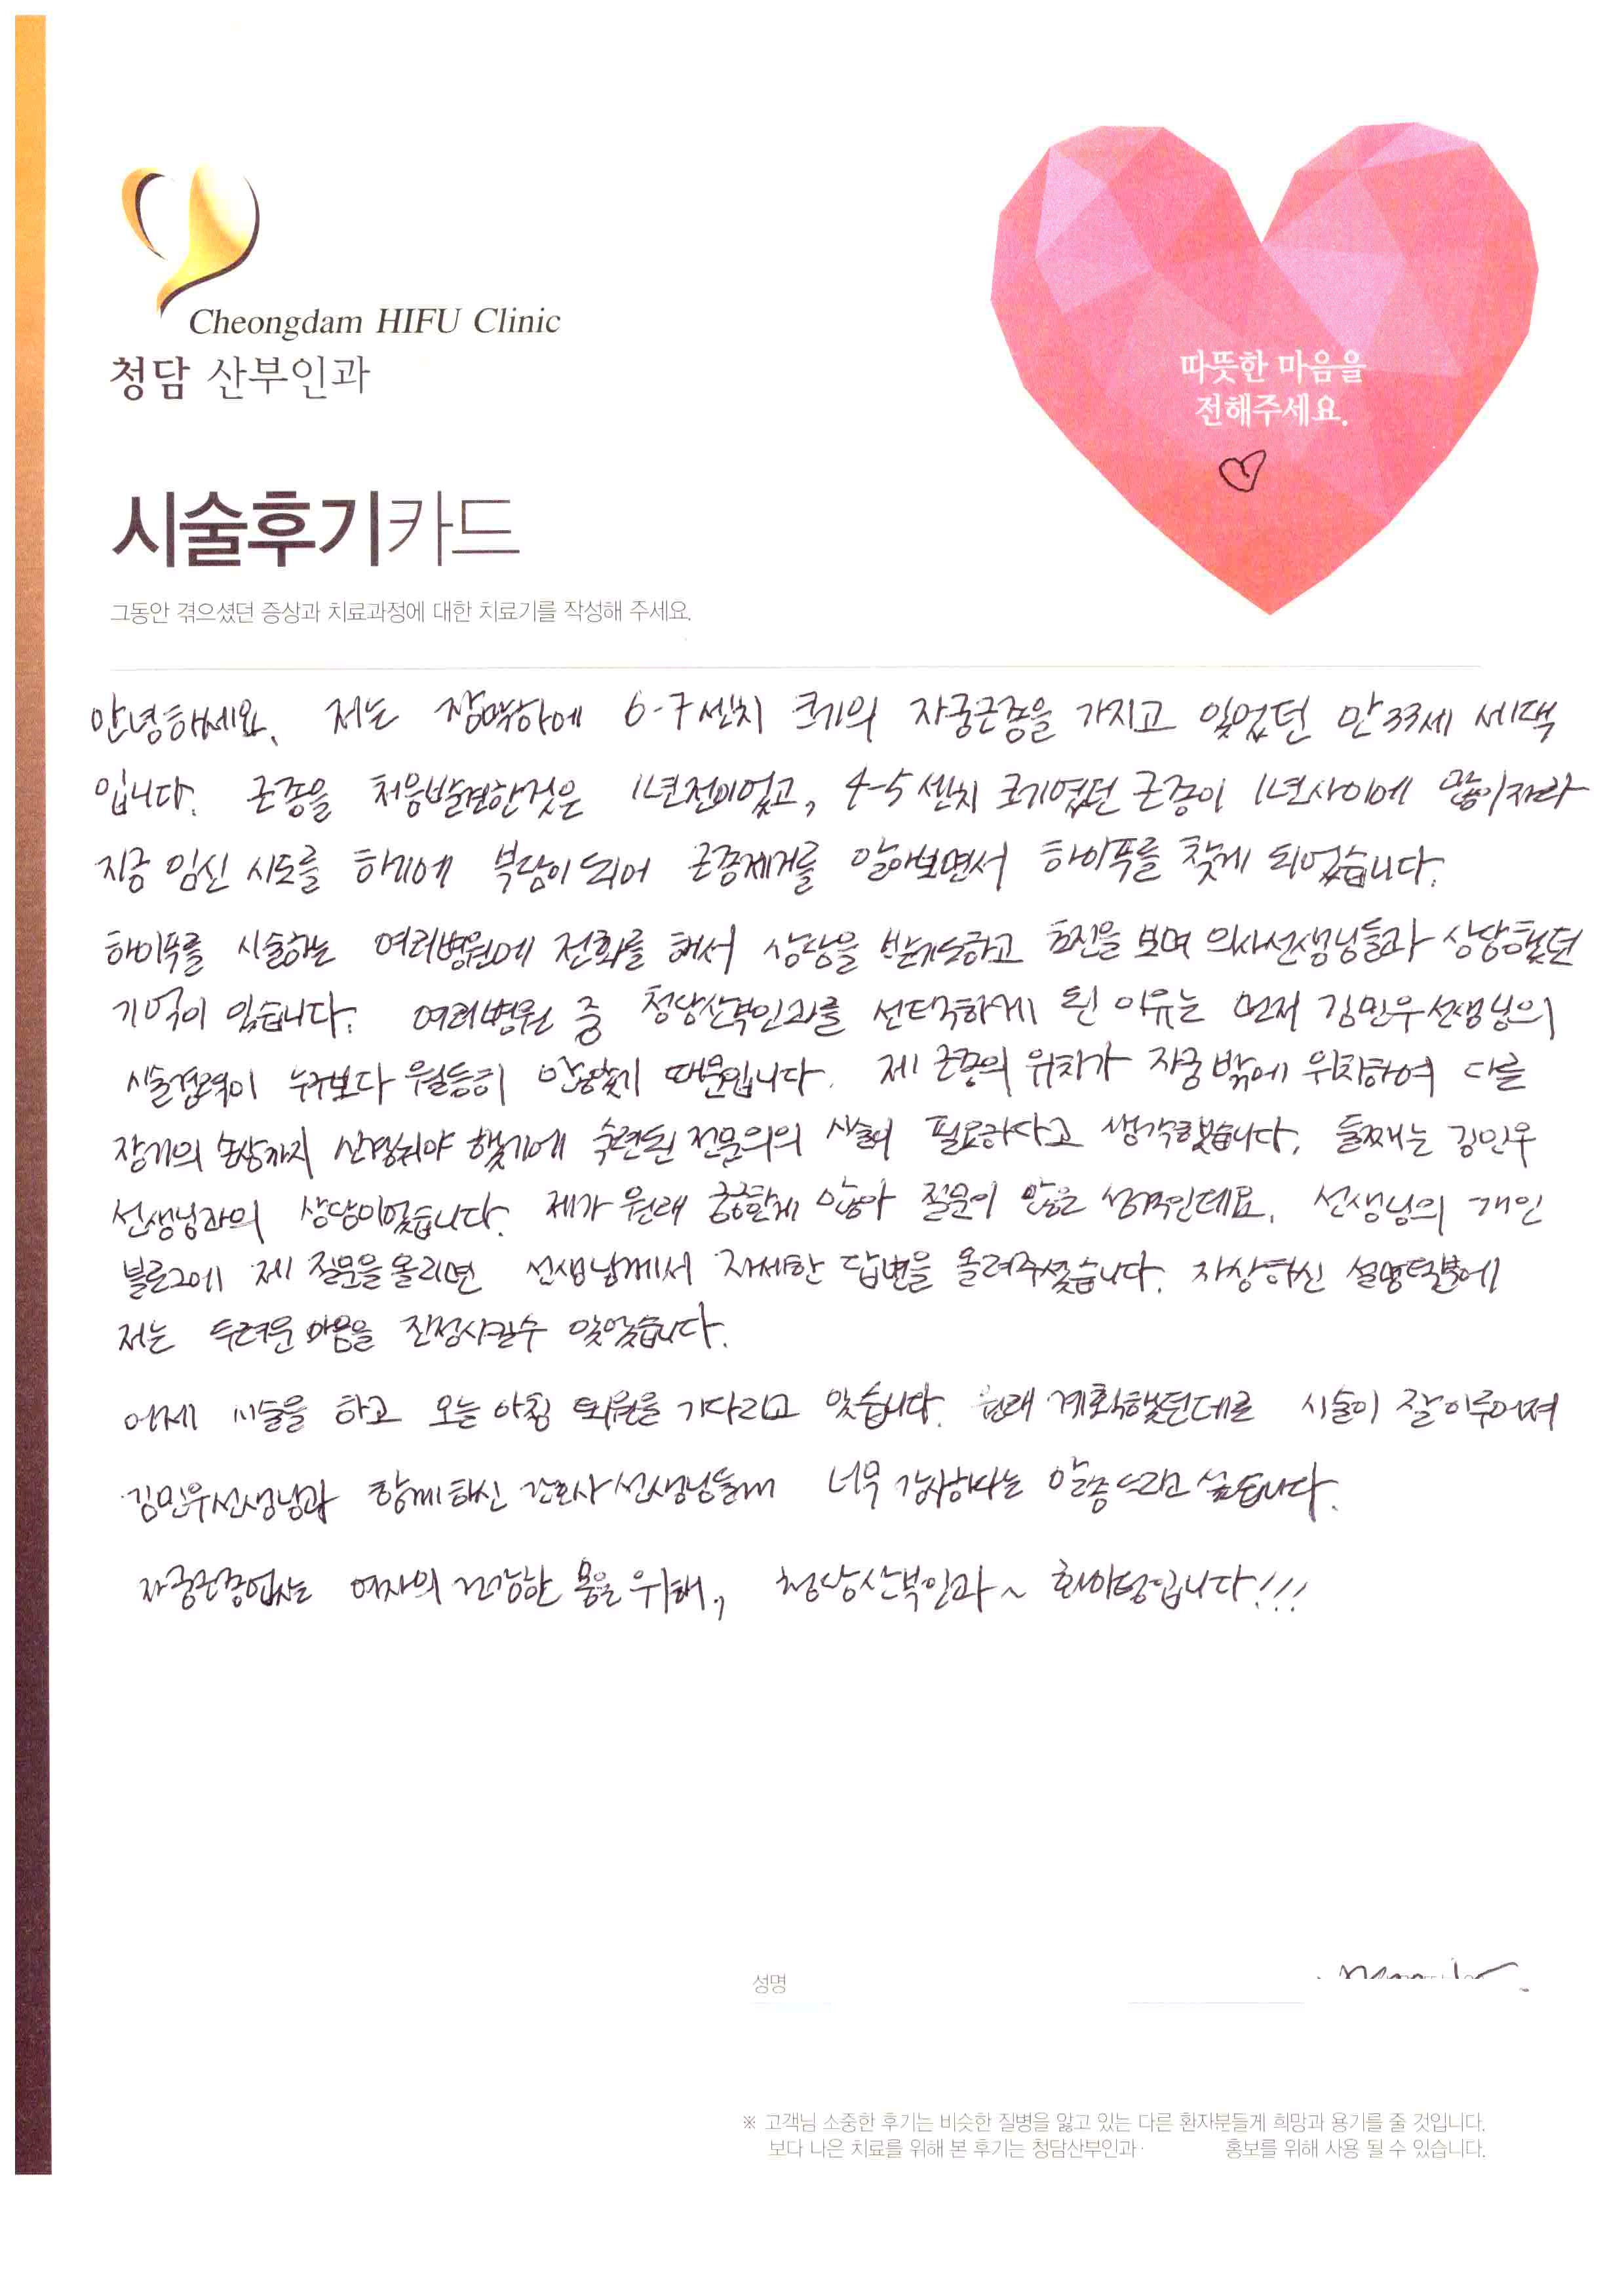 Cheongdam HIFU Clinic
청담 산부인과
따뜻한 마음을
전해주세요.
시술후기카드
그동안 겪으셨던 증상과 치료과정에 대한 치료기를 작성해 주세요.
안녕하세요. 저는 장막하에 6-7센치 크기의 자궁근종을 가지고 있었던 만 33세 새댁
입니다. 근종을 처음발견한것은 1년전이었고, 4-5센치 크기였던 근종이 1년사이에 많이자라
지금 임신 시도를 하기에 부담이 되어 근종제거를 알아보면서 하이푸를 찾게 되었습니다.
하이푸를 시술하는 여러병원에 전화를 해서 상담을 받기도하고 초진을 보며 의사선생님들과 상담했던
기억이 있습니다. 여러병원 중 청담산부인과를 선택하게 된 이유는 먼저 김민우선생님의
시술경력이 누구보다 월등히 많았기 때문입니다. 제 근종의 위치가 자궁밖에 위치하여 다른
장기의 손상까지 신경써야 했기에 숙련된 전문의의 시술이 필요하다고 생각했습니다. 둘째는 김민우
선생님과의 상담이었습니다. 제가 원래 궁금한게 많아 질문이 많은 성격인데요. 선생님의 개인
블로그에 제 질문을 올리면 선생님께서 자세한 답변을 올려주셨습니다. 자상하신 설명덕분에
저는 두려운 마음을 진정시킬수 있었습니다.
어제 시술을 하고 오늘 아침 퇴원을 기다리고 있습니다. 원래 계획했던데로 시술이 잘이루어져
김민우선생님과 함께하신 간호사선생님들께 너무 감사하다는 말씀 드리고 싶습니다.
자궁근종없는 여자의 건강한 몸을 위해, 청담산부인과~ 화이팅입니다!!!
성명
※ 고객님 소중한 후기는 비슷한 질병을 앓고 있는 다른 환자분들게 희망과 용기를 줄 것입니다.
보다 나은 치료를 위해 본 후기는 청담산부인과· 홍보를 위해 사용 될 수 있습니다.